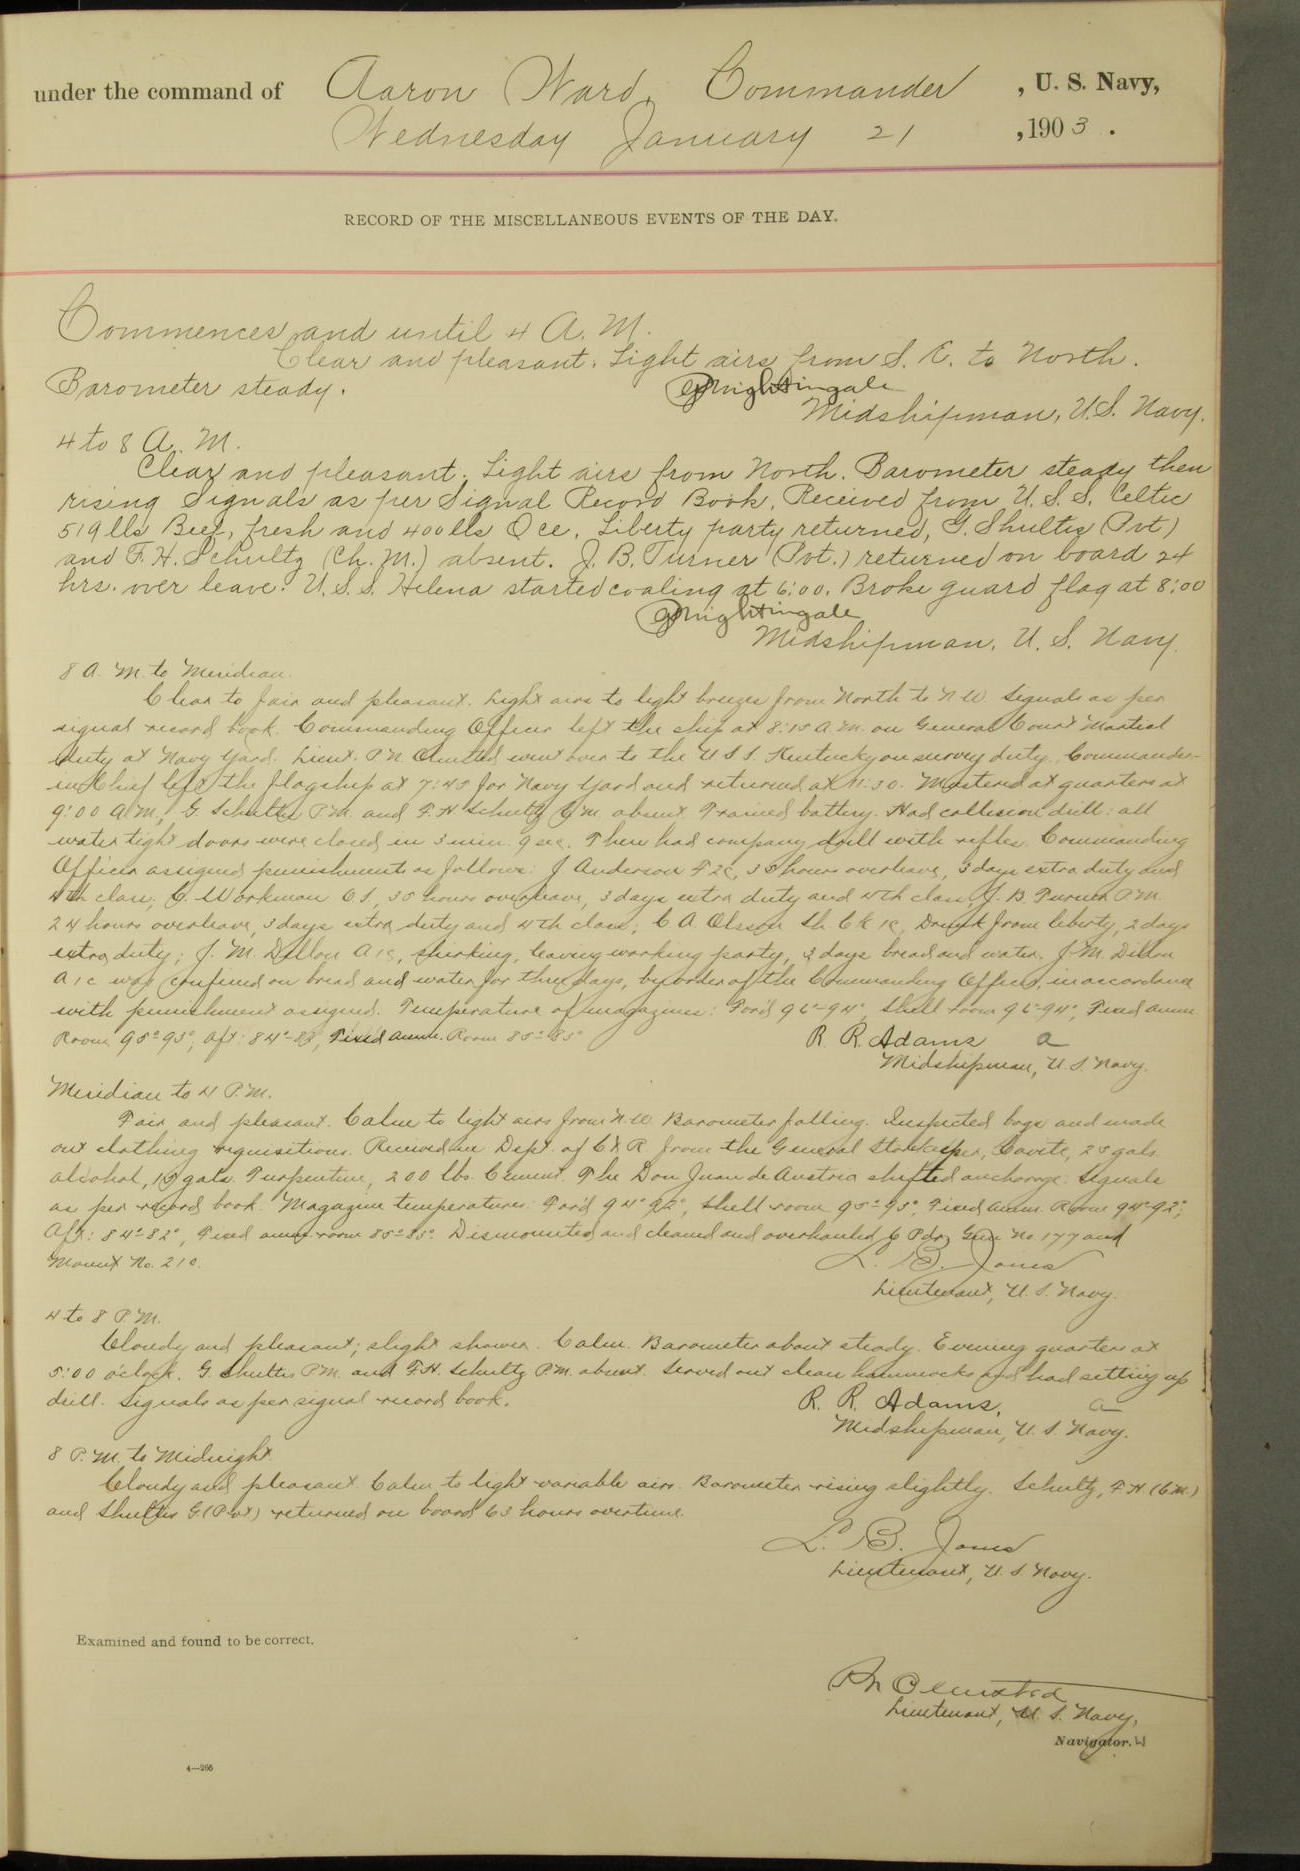 under the command of Aaron Ward, Commander, U. S. Navy,
Wednesday January 21, 1903.
RECORD OF THE MISCELLANEOUS EVENTS OF THE DAY.
Commences and until 4 A. M.
Clear and pleasant. Light airs from S. E. to North.
Barometer steady. Nightingale
Midshipman, U.S. Navy.
4 to 8 A. M.
Clear and pleasant. Light airs from North. Barometer steady then
rising Signals as per Signal Record Book. Received from U. S. S. Celtic
519 lls Beef, fresh and 400 lls Ice. Liberty party returned, G. Shultis (Pvt)
and F. H. Schultz (Ch. M.) absent. J. B. Turner (Pvt.) returned on board 24
hrs. over leave. U. S. S. Helena started coaling at 6:00. Broke guard flag at 8:00
Nightingale
Midshipman, U. S. Navy.
8 A. M. to Meridian.
Clear to fair and pleasant. Light airs to light breezes from North to N W Signals as per
signal record book. Commanding Officer left the ship at 8:15 A.M. on General Court Martial
duty at Navy Yard. Lieut. P. N. Olmsted went over to the U S S Kentucky on survey duty. Commander-
in Chief left the flagship at 7:45 for Navy Yard and returned at 11:30. Mustered at quarters at
9:00 A.M., G Schultis P.M. and F. H Schultz C.M. absent. Trained battery. Had collision drill: all
water tight doors were closed in 3 min. 9 sec. Then had company drill with rifles. Commanding
Officer assigned punishments as follows: J Anderson F 2c, 35 hours overleave, 3 days extra duty and
4th class; C. Workman O S, 35 hours overleave, 3 days extra duty and 4th class; J. B. Turner P.M.
24 hours overleave, 3 days extra duty and 4th class; C A Olsson Sh. C k 1c, Drunk from liberty, 2 days
extra duty; J. M. Dillon A 1 c, shirking, leaving working party, 3 days bread and water. J. M. Dillon
A 1 c was confined on bread and water for three days, by order of the Commanding Officer, in accordance
with punishment assigned. Temperature of magazines: For'd 96°-94°, Shell room 96°-94°, Fixed amm.
Room 95°-95°, Aft: 84°-83, Fixed amm. Room 85°-85° R. R. Adams a
Midshipman, U. S. Navy.
Meridian to 4 P.M.
Fair and pleasant. Calm to light airs from N.W. Barometer falling. Inspected bags and made
out clothing requisitions. Received in Dept. of C & R from the General Storekeeper, Cavite, 25 gals.
alcohol, 15 gals. Turpentine, 200 lbs. Cement. The Don Juan de Austria shifted anchorage. Signals
as per record book. Magazine temperatures: For'd 94°-92°, Shell room 95°-95°, Fixed amm. Room 94°-92°;
Aft: 84°-82°, Fixed amm. room 85°-85°. Dismounted and cleaned and overhauled 6 Pdr. Gun No. 177 and
Mount No. 210. L. B. Jones
Lieutenant, U. S. Navy.
4 to 8 P.M.
Cloudy and pleasant; slight shower. Calm. Barometer about steady. Evening quarters at
5:00 o'clock. G. Shultis P.M. and F. H. Schultz P.M. absent. Served out clean hammocks and had setting up
drill. Signals as per signal record book. R. R. Adams, a
Midshipman, U. S. Navy.
8 P.M. to Midnight.
Cloudy and pleasant. Calm to light variable airs. Barometer rising slightly. Schultz, F. H. (C.M.)
and Shultis G (Pvt) returned on board 63 hours overtime.
L. B. Jones
Lieutenant, U. S. Navy.
Examined and found to be correct.
P N Olmsted
Lieutenant, U. S. Navy,
Navigator.
4—266